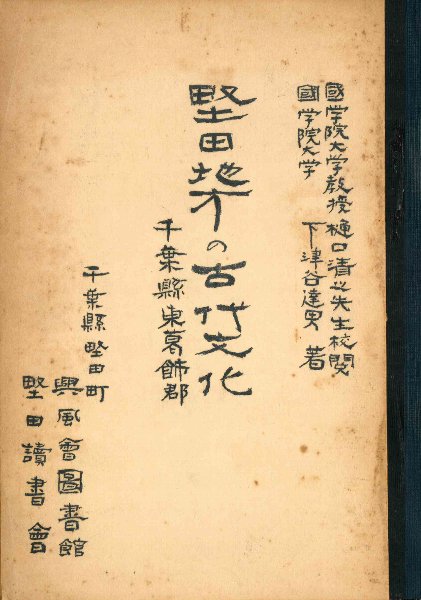 國学院大学教授樋口清之先生校閲
國学院大学 下津谷達男 著
野田地方の古代文化
千葉縣東葛飾郡
千葉縣野田町
興風會圖書館
野田讀書會